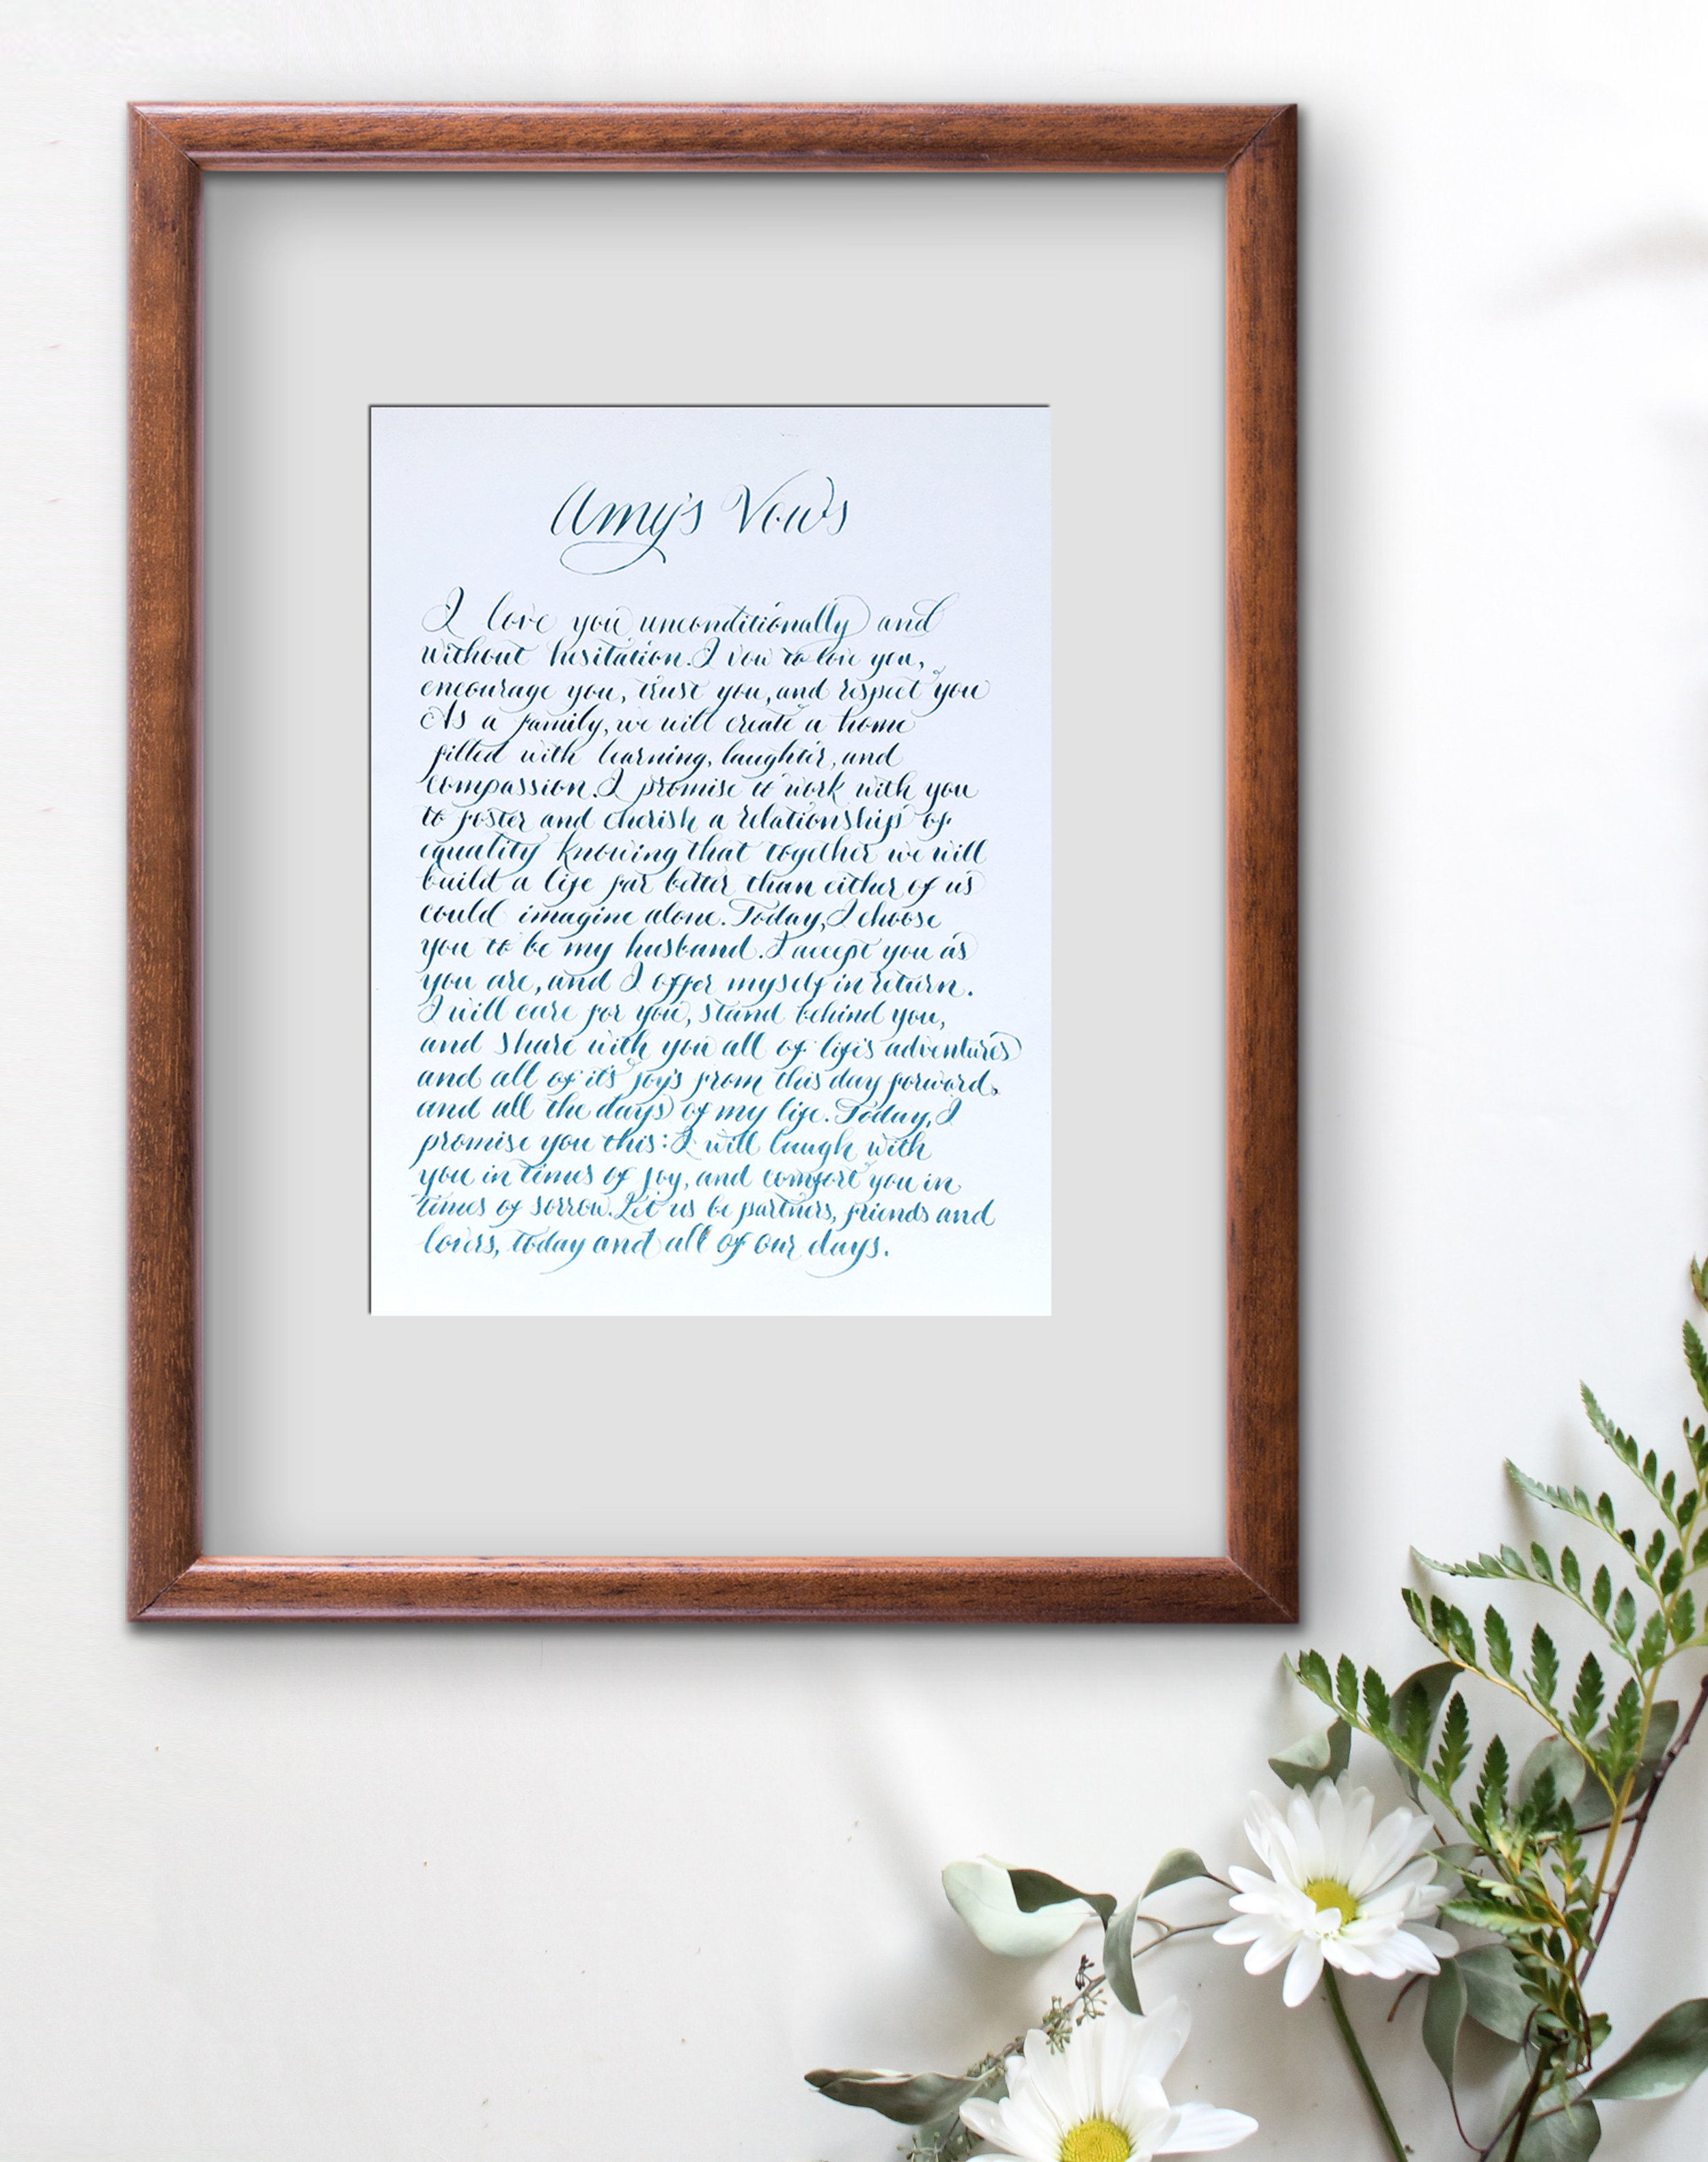 Amy's Vows
I love you unconditionally and
without hesitation. I vow to love you,
encourage you, trust you, and respect you
As a family, we will create a home
filled with learning, laughter, and
compassion. I promise to work with you
to foster and cherish a relationship of
equality knowing that together we will
build a life far better than either of us
could imagine alone. Today, I choose
you to be my husband. I accept you as
you are, and I offer myself in return.
I will care for you, stand behind you,
and share with you all of life's adventures
and all of it's joy's from this day forward,
and all the days of my life. Today, I
promise you this: I will laugh with
you in times of joy, and comfort you in
times of sorrow. Let us be partners, friends and
lovers, today and all of our days.